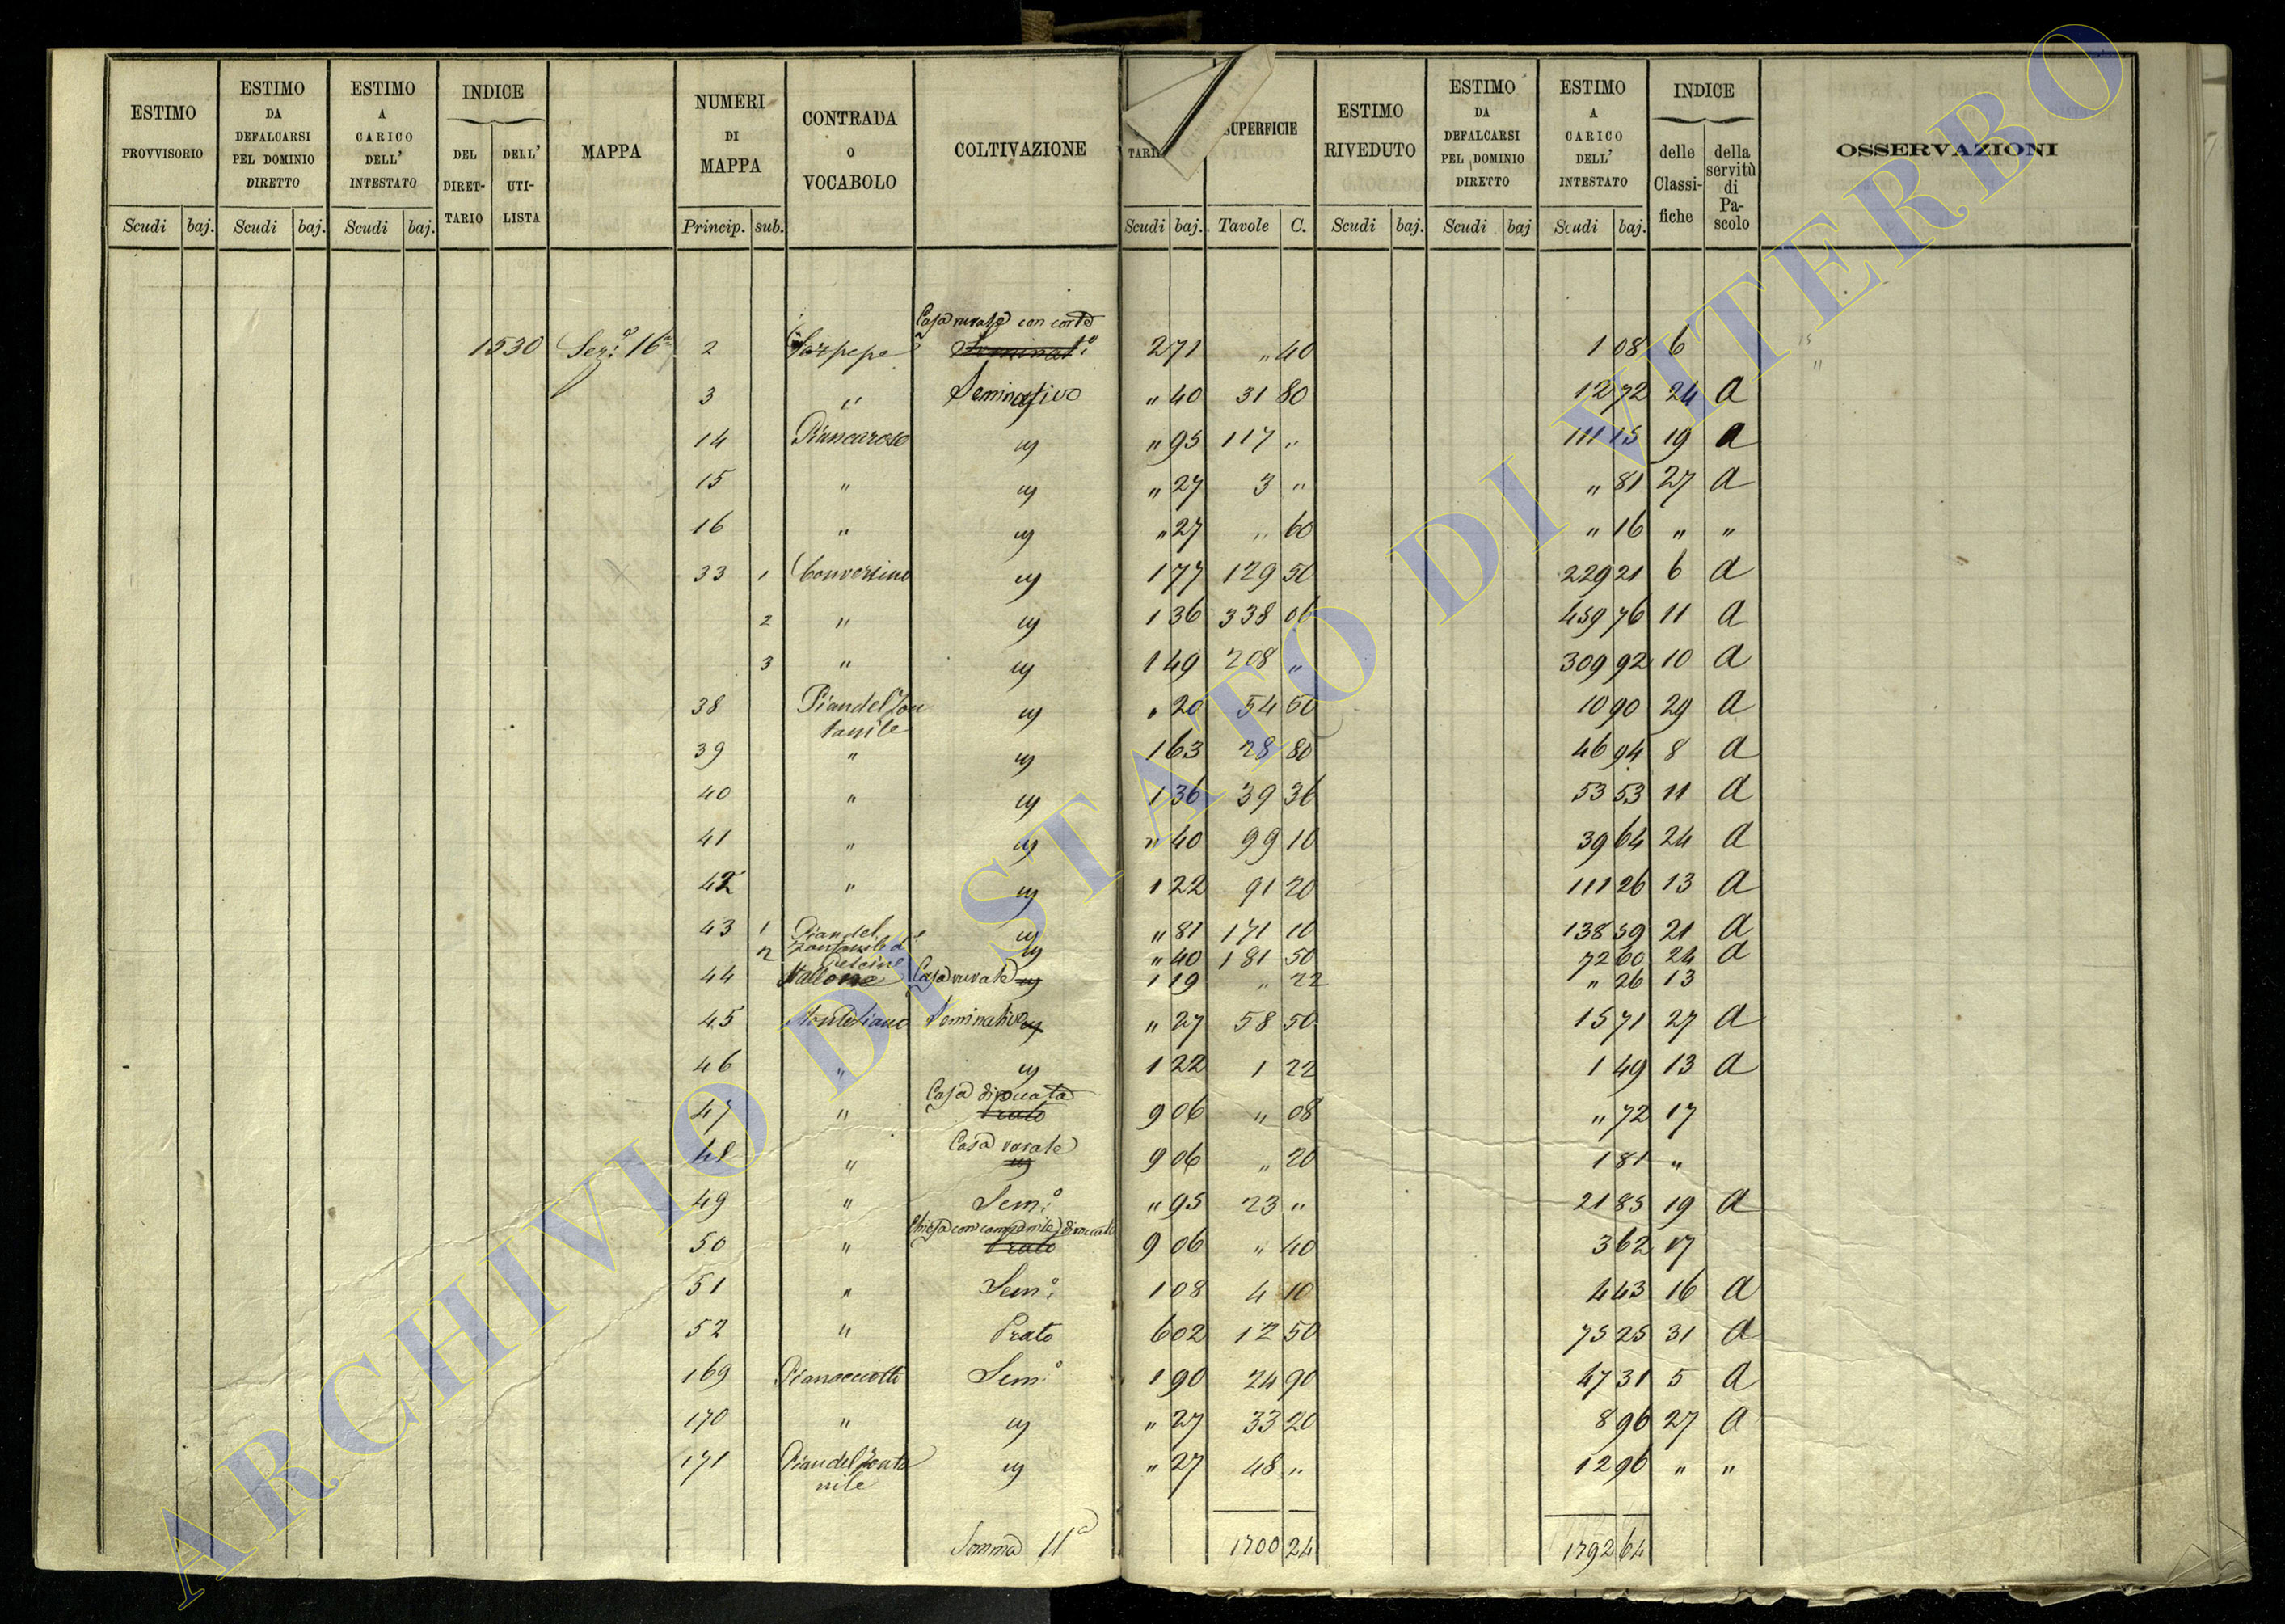 ESTIMO PROVVISORIO Scudi baj.
ESTIMO DA DEFALCARSI PEL DOMINIO DIRETTO Scudi baj.
ESTIMO A CARICO DELL' INTESTATO Scudi baj.
INDICE DEL DIRETTARIO DELL' UTILISTA
MAPPA
NUMERI DI MAPPA Princip. sub.
CONTRADA O VOCABOLO
COLTIVAZIONE
Scudi baj.
SUPERFICIE Tavole C.
ESTIMO RIVEDUTO Scudi baj.
ESTIMO DA DEFALCARSI PEL DOMINIO DIRETTO Scudi baj
ESTIMO A CARICO DELL' INTESTATO Scudi baj.
INDICE delle Classifiche della servitù di Pascolo
OSSERVAZIONI
Casa rurale con corte
1530 Sez.e 16a 2 2 71 " 40 1 08 6
3 " Seminativo " 40 31 80 12 72 24 a
14 " 95 117 " 111 15 19 a
15 " " 27 3 " " 81 27 a
16 " " 27 " 60 " 16 " "
33 1 1 77 129 50 229 21 6 a
2 " 1 36 338 06 459 76 11 a
3 " 1 49 208 " 309 92 10 a
38 Pian del Fon " 20 54 50 10 90 29 a
tanile
39 " 1 63 28 80 46 94 8 a
40 " 1 36 39 36 53 53 11 a
41 " " 40 99 10 39 64 24 a
42 " 1 22 91 20 111 26 13 a
43 1 Pian del " 81 171 10 138 59 21 a
2 " 40 181 50 72 60 24 a
44 Casa rurale 1 19 " 22 " 26 13
45 Seminativo " 27 58 50 15 71 27 a
46 " 1 22 1 22 1 49 13 a
Casa diroccata
47 " Prato 9 06 " 08 " 72 17
Casa rurale
48 " 9 06 " 20 1 81 "
49 " Sem.o " 95 23 " 21 85 19 a
Chiesa con campanile diroccato
50 " Prato 9 06 " 40 3 62 17
51 " Sem.o 1 08 4 10 4 43 16 a
52 " Prato 6 02 12 50 75 25 31 a
169 Sem.o 1 90 24 90 47 31 5 a
170 " " 27 33 20 8 96 27 a
171 Pian del Fonta " 27 48 " 12 96 " "
nile
Somma 11a 1700 24 1792 64
ARCHIVIO DI STATO DI VITERBO